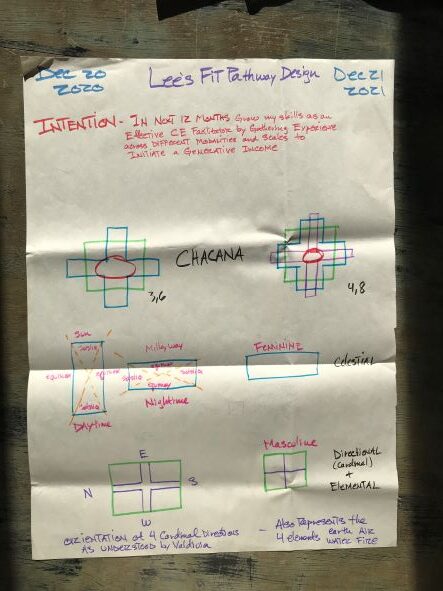 Dec 20 2020
Lee's FiT Pathway Design
Dec 21 2021
INTENTION - IN NOXT 12 MONTHS Grow my skills as an
Effective CE Facilitator by Gathering Experience
across DIFFERENT Modalities and Scales to
INITIATE a GENERATIVE INCOME
CHACANA
3,6
4,8
Sun
solstice
equinox
equinox
solstice
DAYtime
Milky way
equinox
solstice
solstice
equinox
Nighttime
FEMININE
Celestial
E
N
S
W
Masculine
DIRECTIONAL
(Cardinal)
+
ELEMENTAL
ORIENTATION of 4 Cardinal Directions
AS UNDERSTOOD by Valdivia
- Also Represents the
4 elements earth Air
WATER FIRE